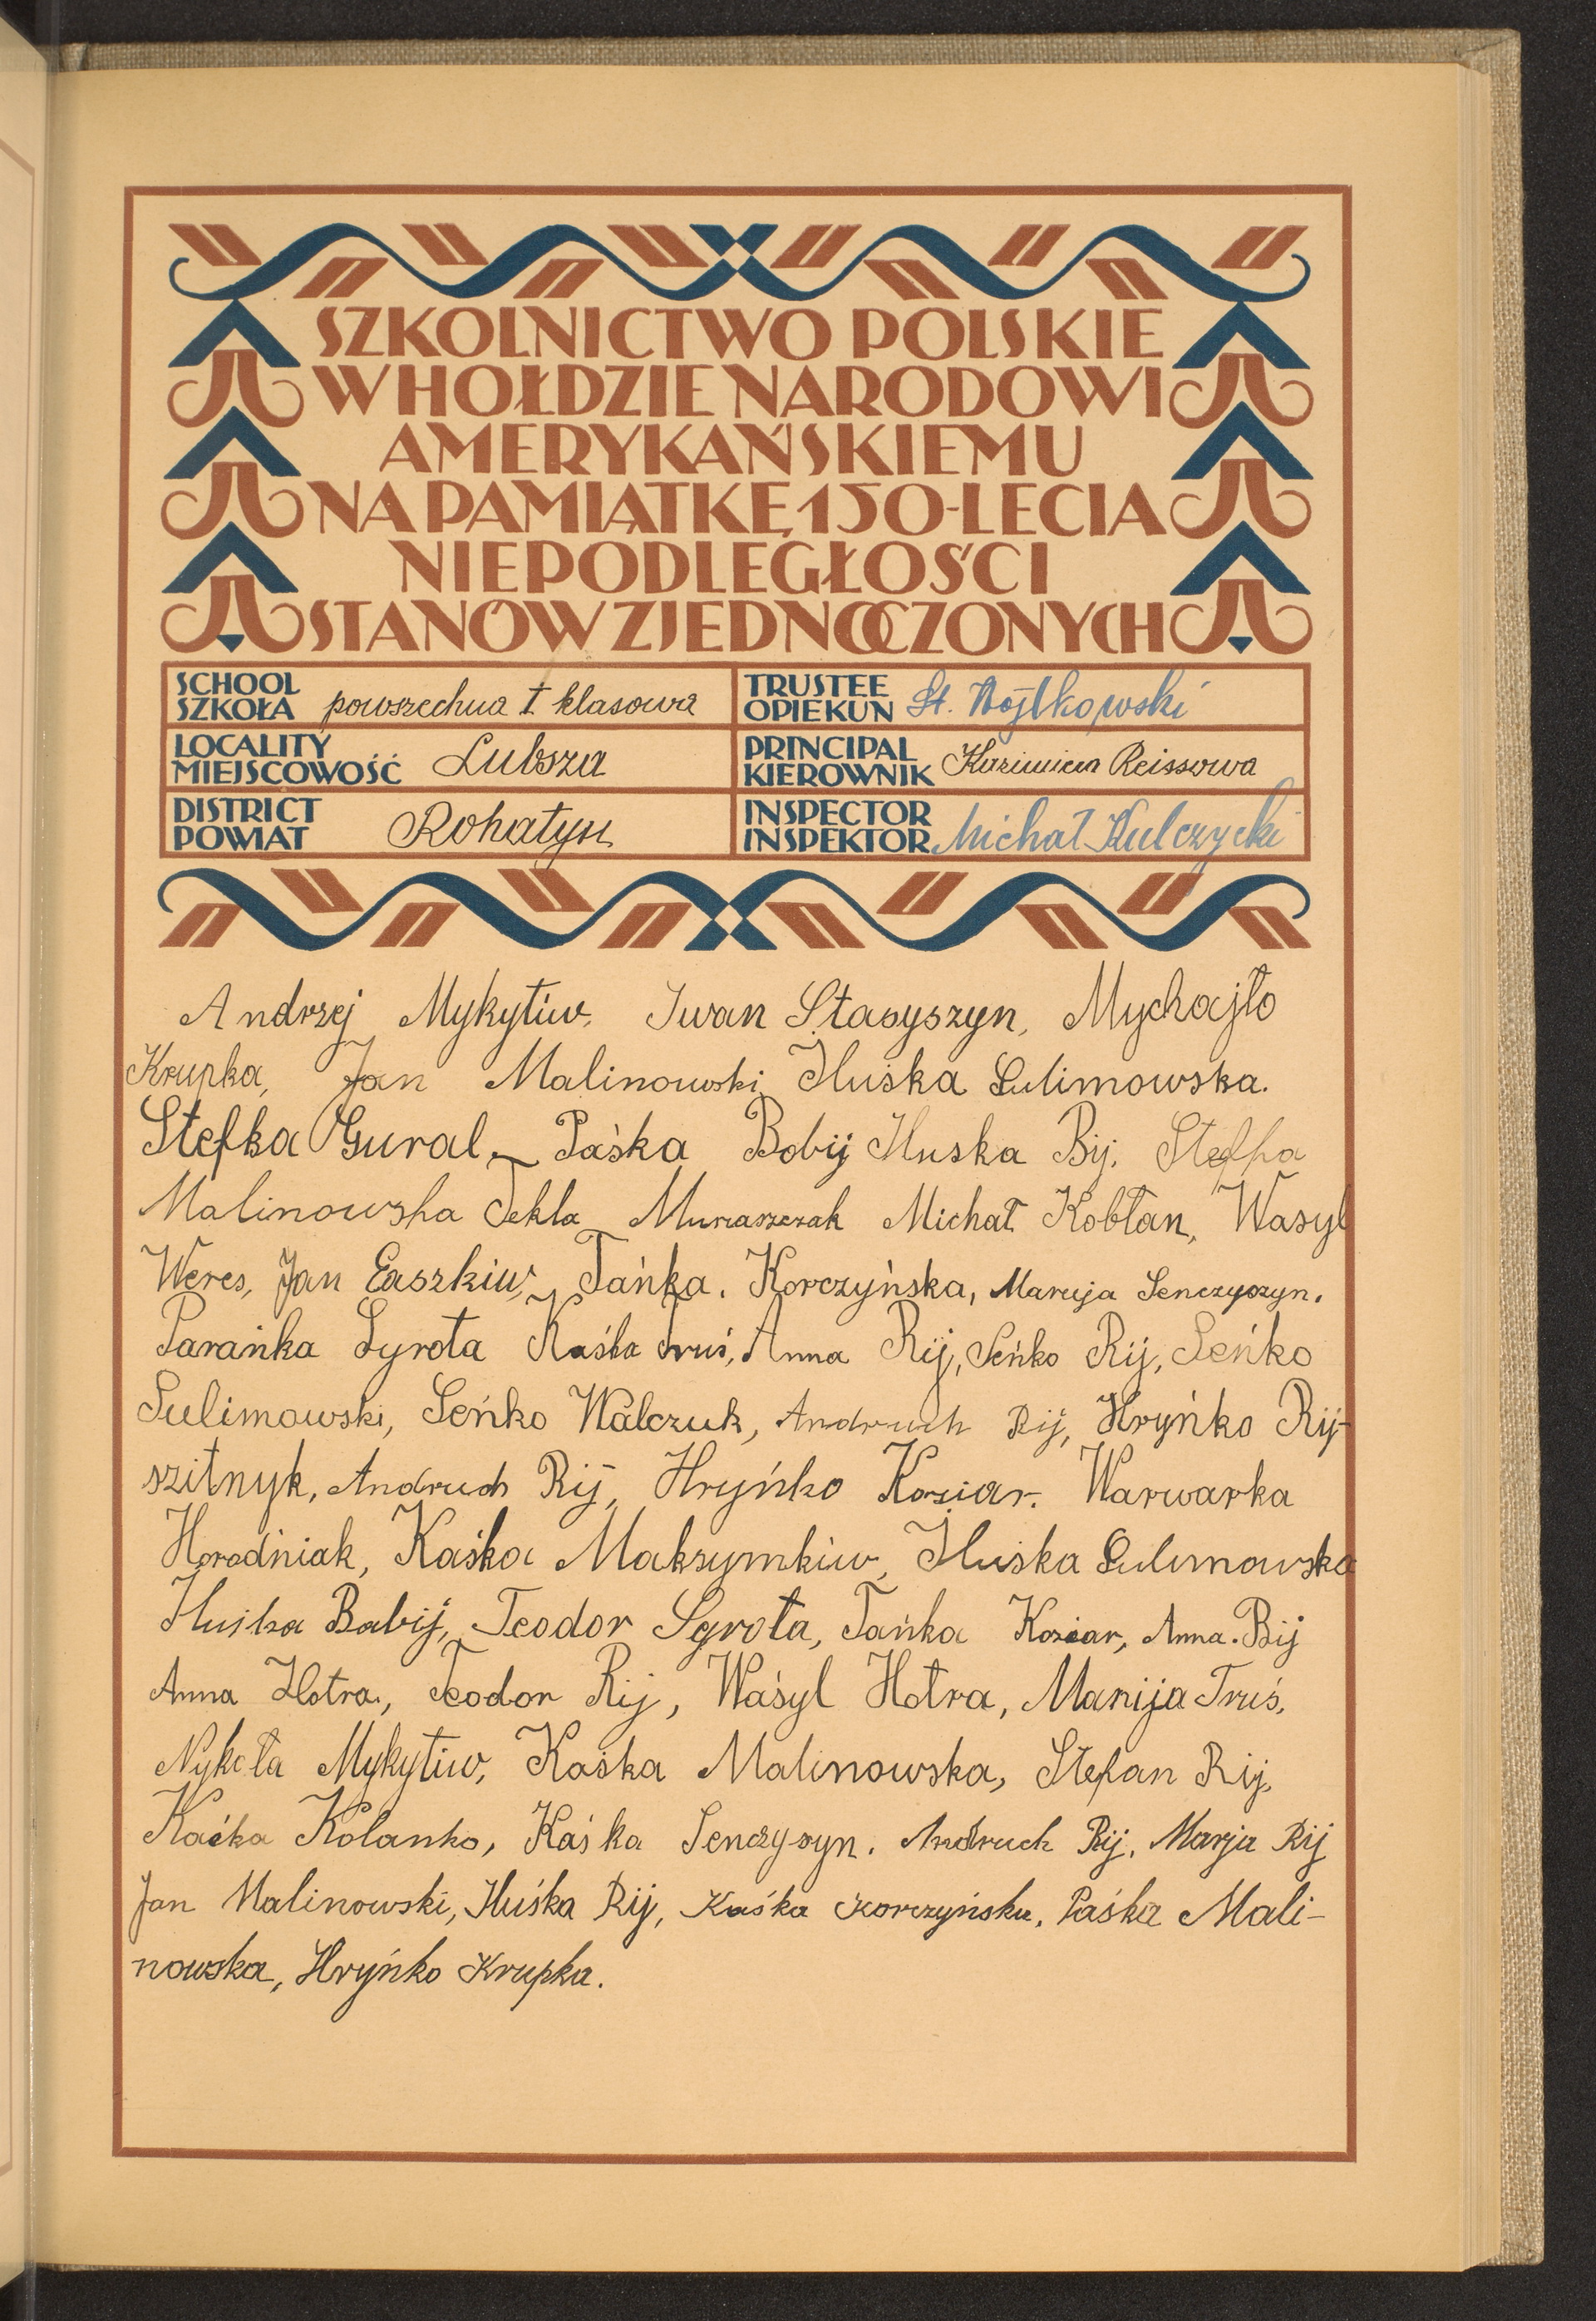 SZKOLNICTWO POLSKIE
W HOŁDZIE NARODOWI
AMERYKAŃSKIEMU
NA PAMIĄTKĘ 150-LECIA
NIEPODLEGŁOŚCI
STANÓW ZJEDNOCZONYCH
SCHOOL
SZKOŁA powszechna I klasowa
TRUSTEE
OPIEKUN St. Wojtkowski
LOCALITY
MIEJSCOWOŚĆ Lubsza
PRINCIPAL
KIEROWNIK Kazimiera Reissowa
DISTRICT
POWIAT Rohatyn
INSPECTOR
INSPEKTOR Michał Kulczycki
Andrzej Mykytiw, Iwan Stasyszyn, Mychajło
Krupka, Jan Malinowski, Iluśka Sulimowska.
Stefka Gural, Paśka Bobij Iluska Bij, Stefka
Malinowska Tekla Muraszczak Michał Kobłan, Wasyl
Weres, Jan Łaszkiw, Tańka. Korczyńska, Maryja Senczyszyn.
Parańka Syrota Kaśka Truś, Anna Rij, Seńko Rij, Seńko
Sulimowski, Seńko Walczuk, Andruch Rij, Hryńko Rij-
szitnyk, Andruch Rij, Hryńko Koziar. Warwarka
Horodniak, Kaśka Maksymkiw, Iluśka Sulimowska
Iluśka Babij, Teodor Syrota, Tańka Koziar, Anna. Bij
Anna Hotra, Teodor Rij, Waśyl Hotra, Marija Truś,
Nykoła Mykytiw, Kaśka Malinowska, Stefan Rij,
Kaśka Kolanko, Kaśka Senczysyn. Andruch Rij, Marja Rij
Jan Malinowski, Iluśka Rij, Kaśka Korczyńska, Paśka Mali-
nowska, Hryńko Krupka.